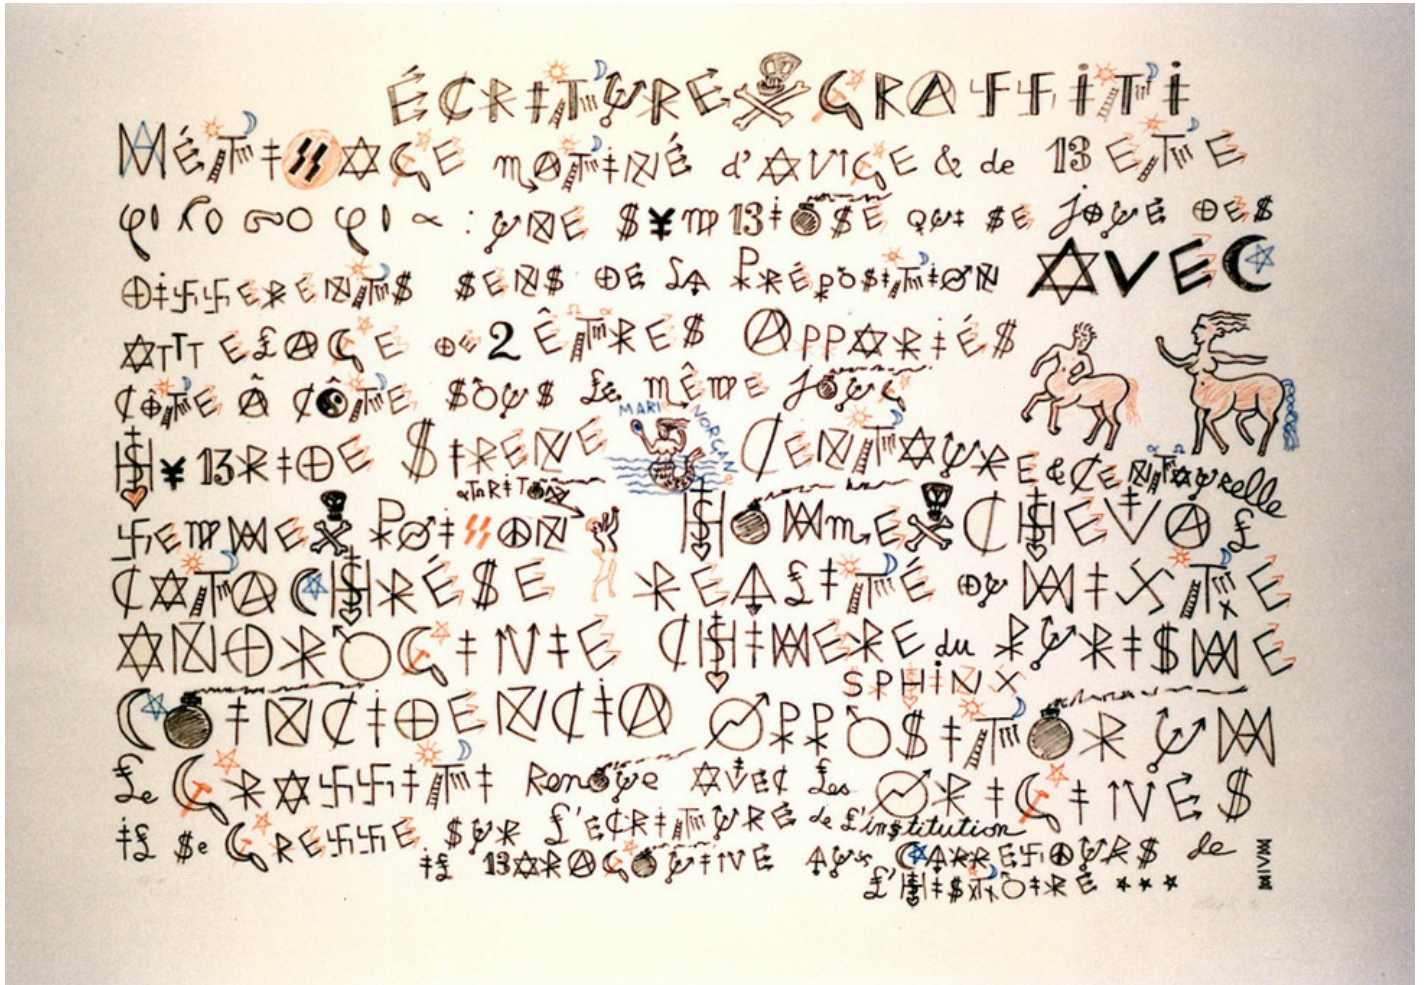 ÉCRITURE GRAFFITI
MÉTISSAGE MATINÉ d'AVIGE & de BETE
: UNE SYMBIOSE QUI SE JOUE DES
DIFFERENTS SENS DE LA PRÉPOSITION AVEC
ATTELAGE DE 2 ÊTRES APPARIÉS
CÔTE Â CÔTE SOUS LE MÊME JOUG
HYBRIDE SIRENE CENTAURE & CENTAURELLE
MARI NORGANE
FEMME POISSON HOMME CHEVAL
CATACHRÉSE REALITÉ OU MIXTE
ANDROGINE CHIMERE du PURISME
SPHINX
COINCIDENCIA OPPOSITORUM
Le GRAFFITI Renoue AVEC Les ORIGINES
IL Se GREFFE SUR L'ECRITURE de L'institution
IL BARAGOUINE AUX CARREFOURS de
L'HISTOIRE ***